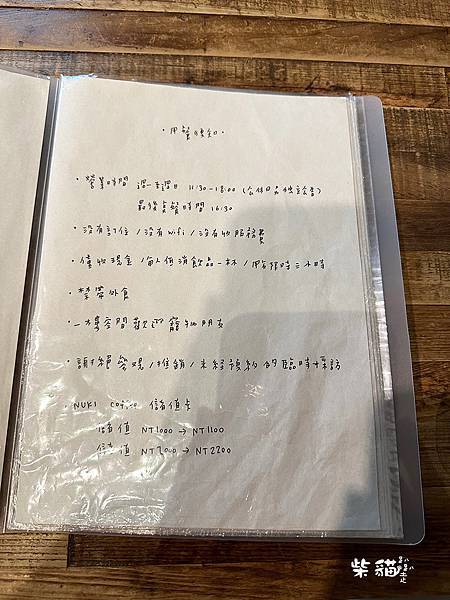 ・用餐須知・
・營業時間 週一至週日 11:30-18:00 (公休日另獨立公告)
最後點餐時間 16:30
・沒有訂位/沒有wifi/沒有收服務費
・僅收現金/每人低消飲品一杯/用餐限時二小時
・禁帶外食
・一樓空間歡迎寵物朋友
・謝絕參觀/推銷/未經預約的臨時採訪
・NUKI coffee 儲值卡
儲值 NT1000→NT1100
儲值 NT2000→NT2200
柴貓趴趴走